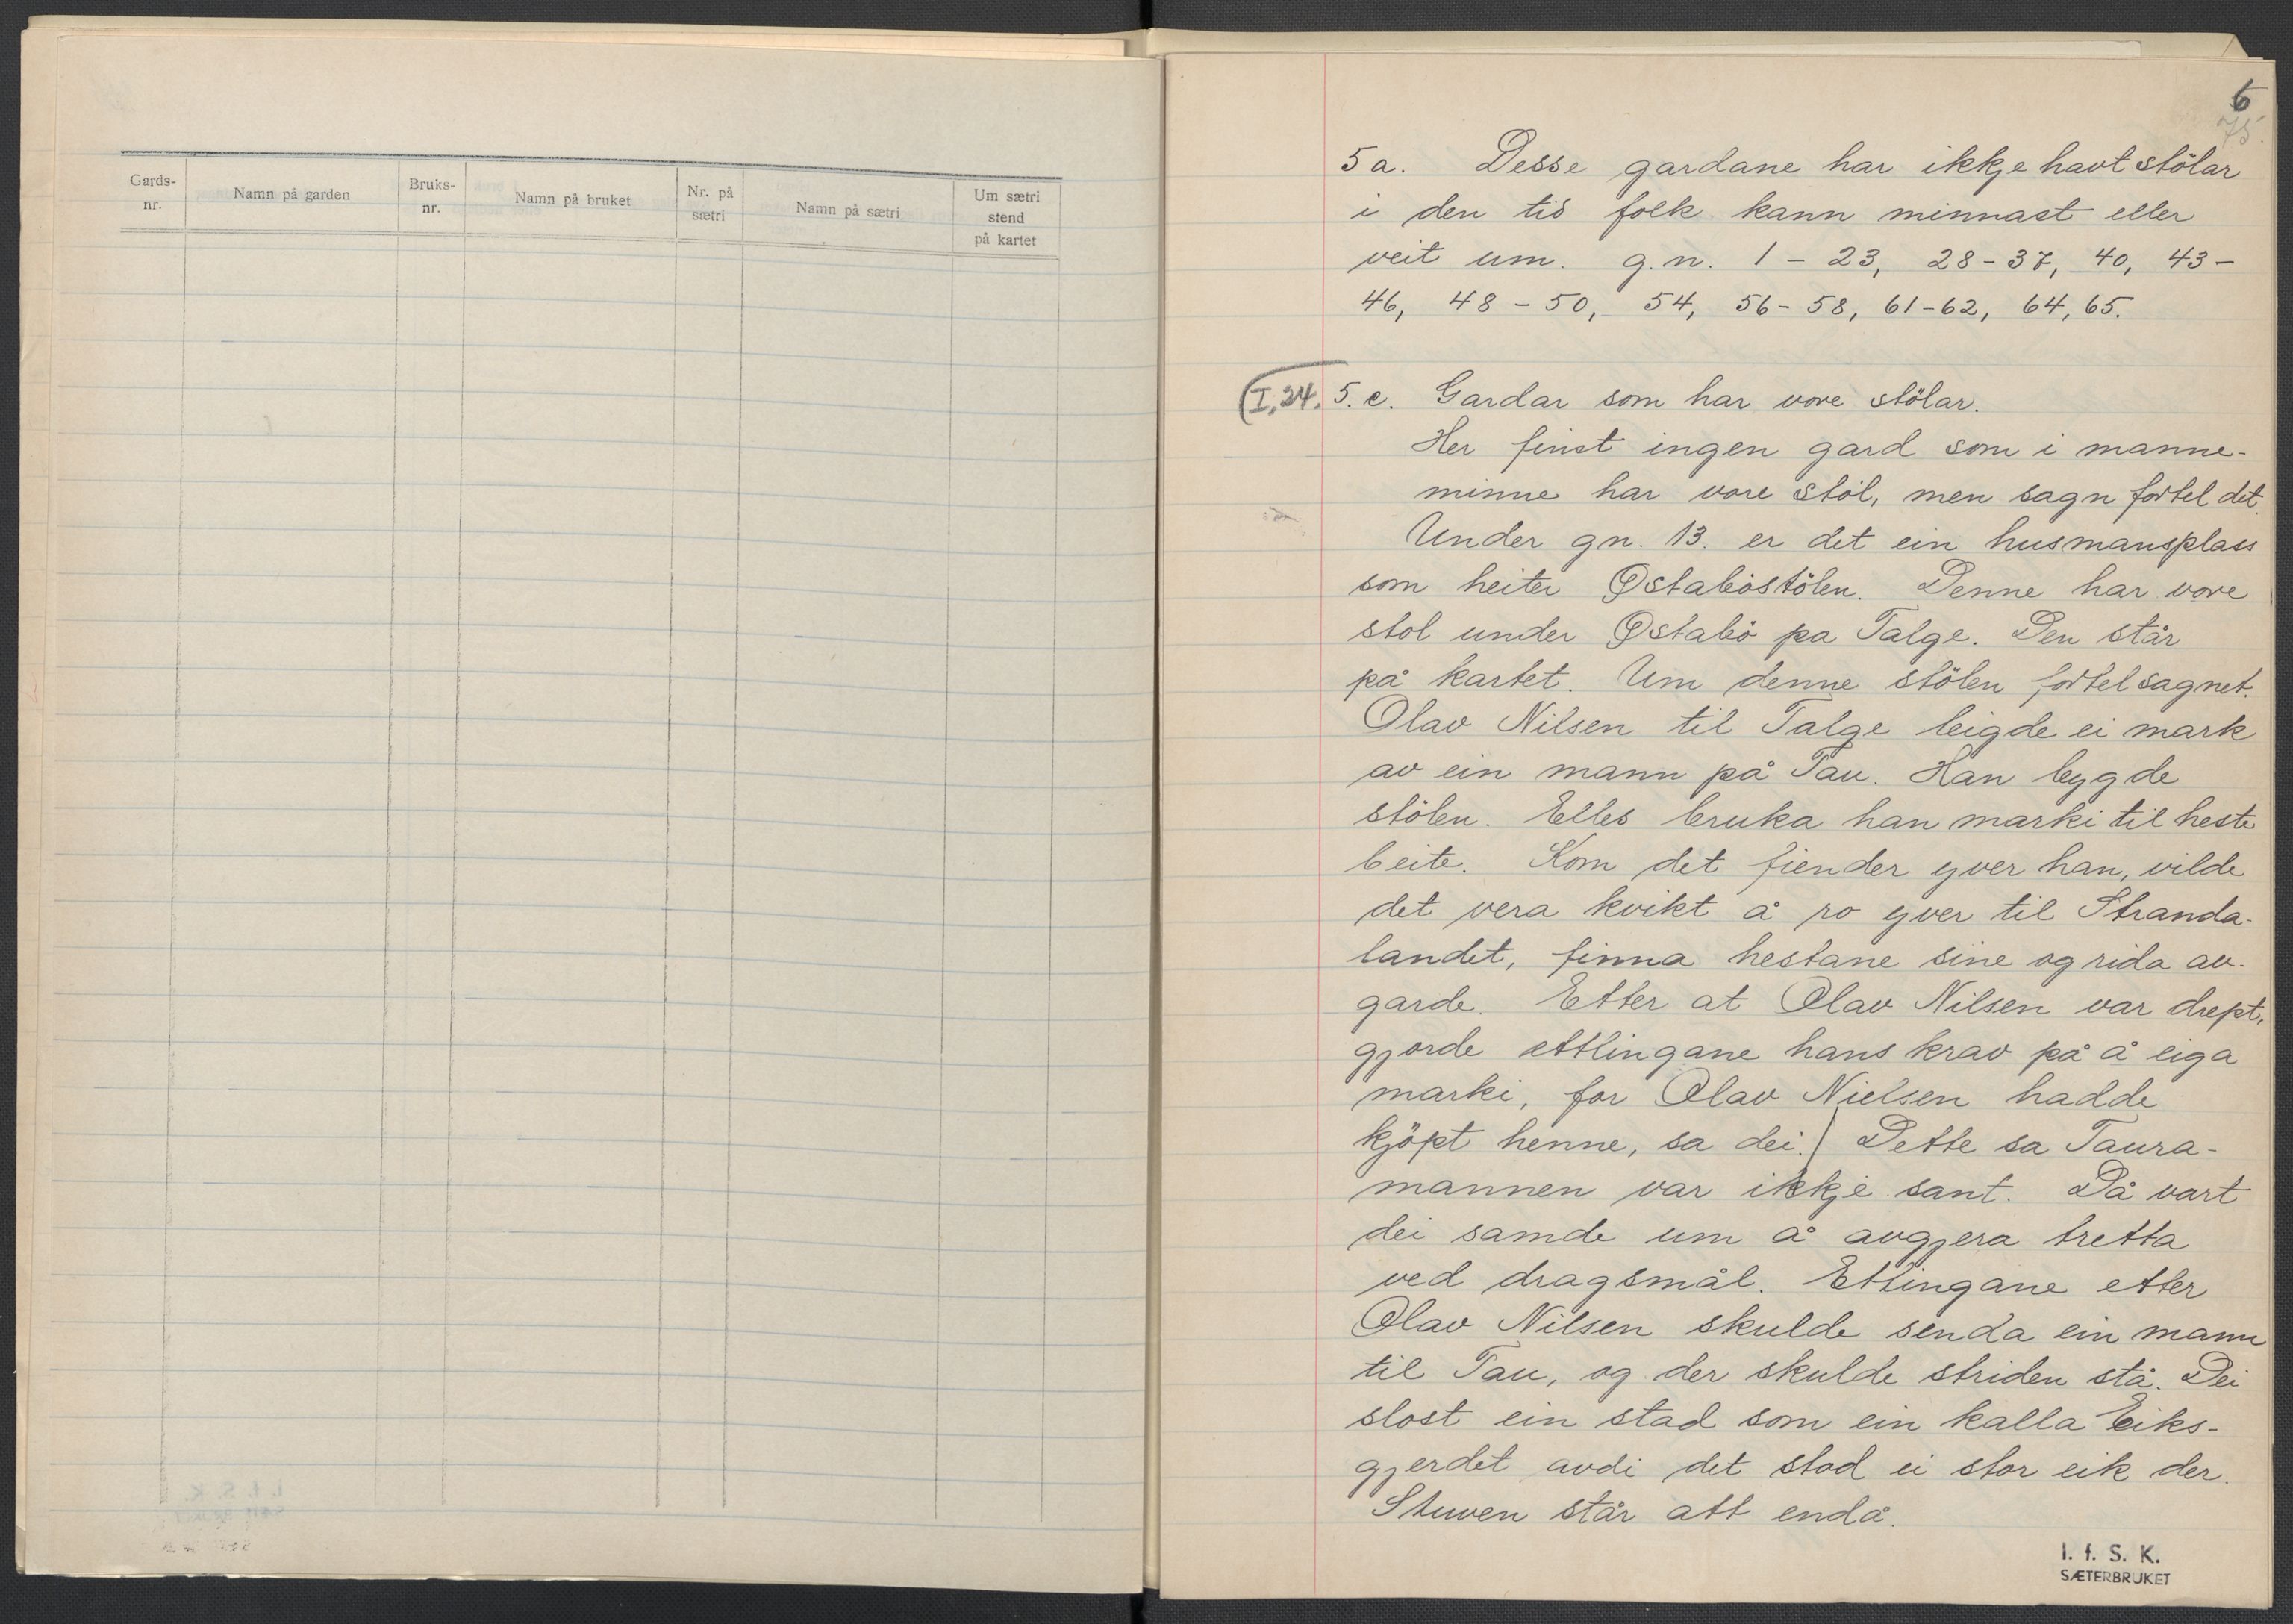 Gards-
nr.
Namn på garden
Bruks-
nr.
Namn på bruket
Nr. på
sætri
Namn på sætri
Um sætri
stend
på kartet
6
75.
5a. Desse gardane har ikkje havt stölar
i den tid folk kann minnast eller
veit um. g.n. 1 - 23, 28-37, 40, 43-
46, 48 - 50, 54, 56-58, 61-62, 64, 65.
I, 24. 5. c. Gardar som har vore stölar.
Her finst ingen gard som i manne-
minne har vore stöl, men sagn fortel det.
Under gn. 13. er det ein husmansplass
som heiter Østabøstölen. Denne har vore
stol under Østabö pa Talge. Den står
på kartet. Um denne stölen fortel sagnet.
Olav Nilsen til Talge leigde ei mark
av ein mann på Tau. Han bygde
stölen. Elles bruka han marki til heste
beite. Kom det fiender yver han, vilde
det vera kvikt å ro yver til Stranda-
landet, finna hestane sine og rida av-
garde. Etter at Olav Nilsen var drept,
gjorde ettlingane hans krav på å eiga
marki, for Olav Nielsen hadde
kjöpt henne, sa dei. Dette sa Taura-
mannen var ikkje sant. Då vart
dei samde um å avgjera tretta
ved dragsmål. Etlingane etter
Olav Nilsen skulde senda ein mann
til Tau, og der skulde striden stå. Dei
slost ein stad som ein kalla Eiks-
gjerdet avdi det stod ei stor eik der.
Stuven står att endå.
I. f. S. K.
SÆTERBRUKET